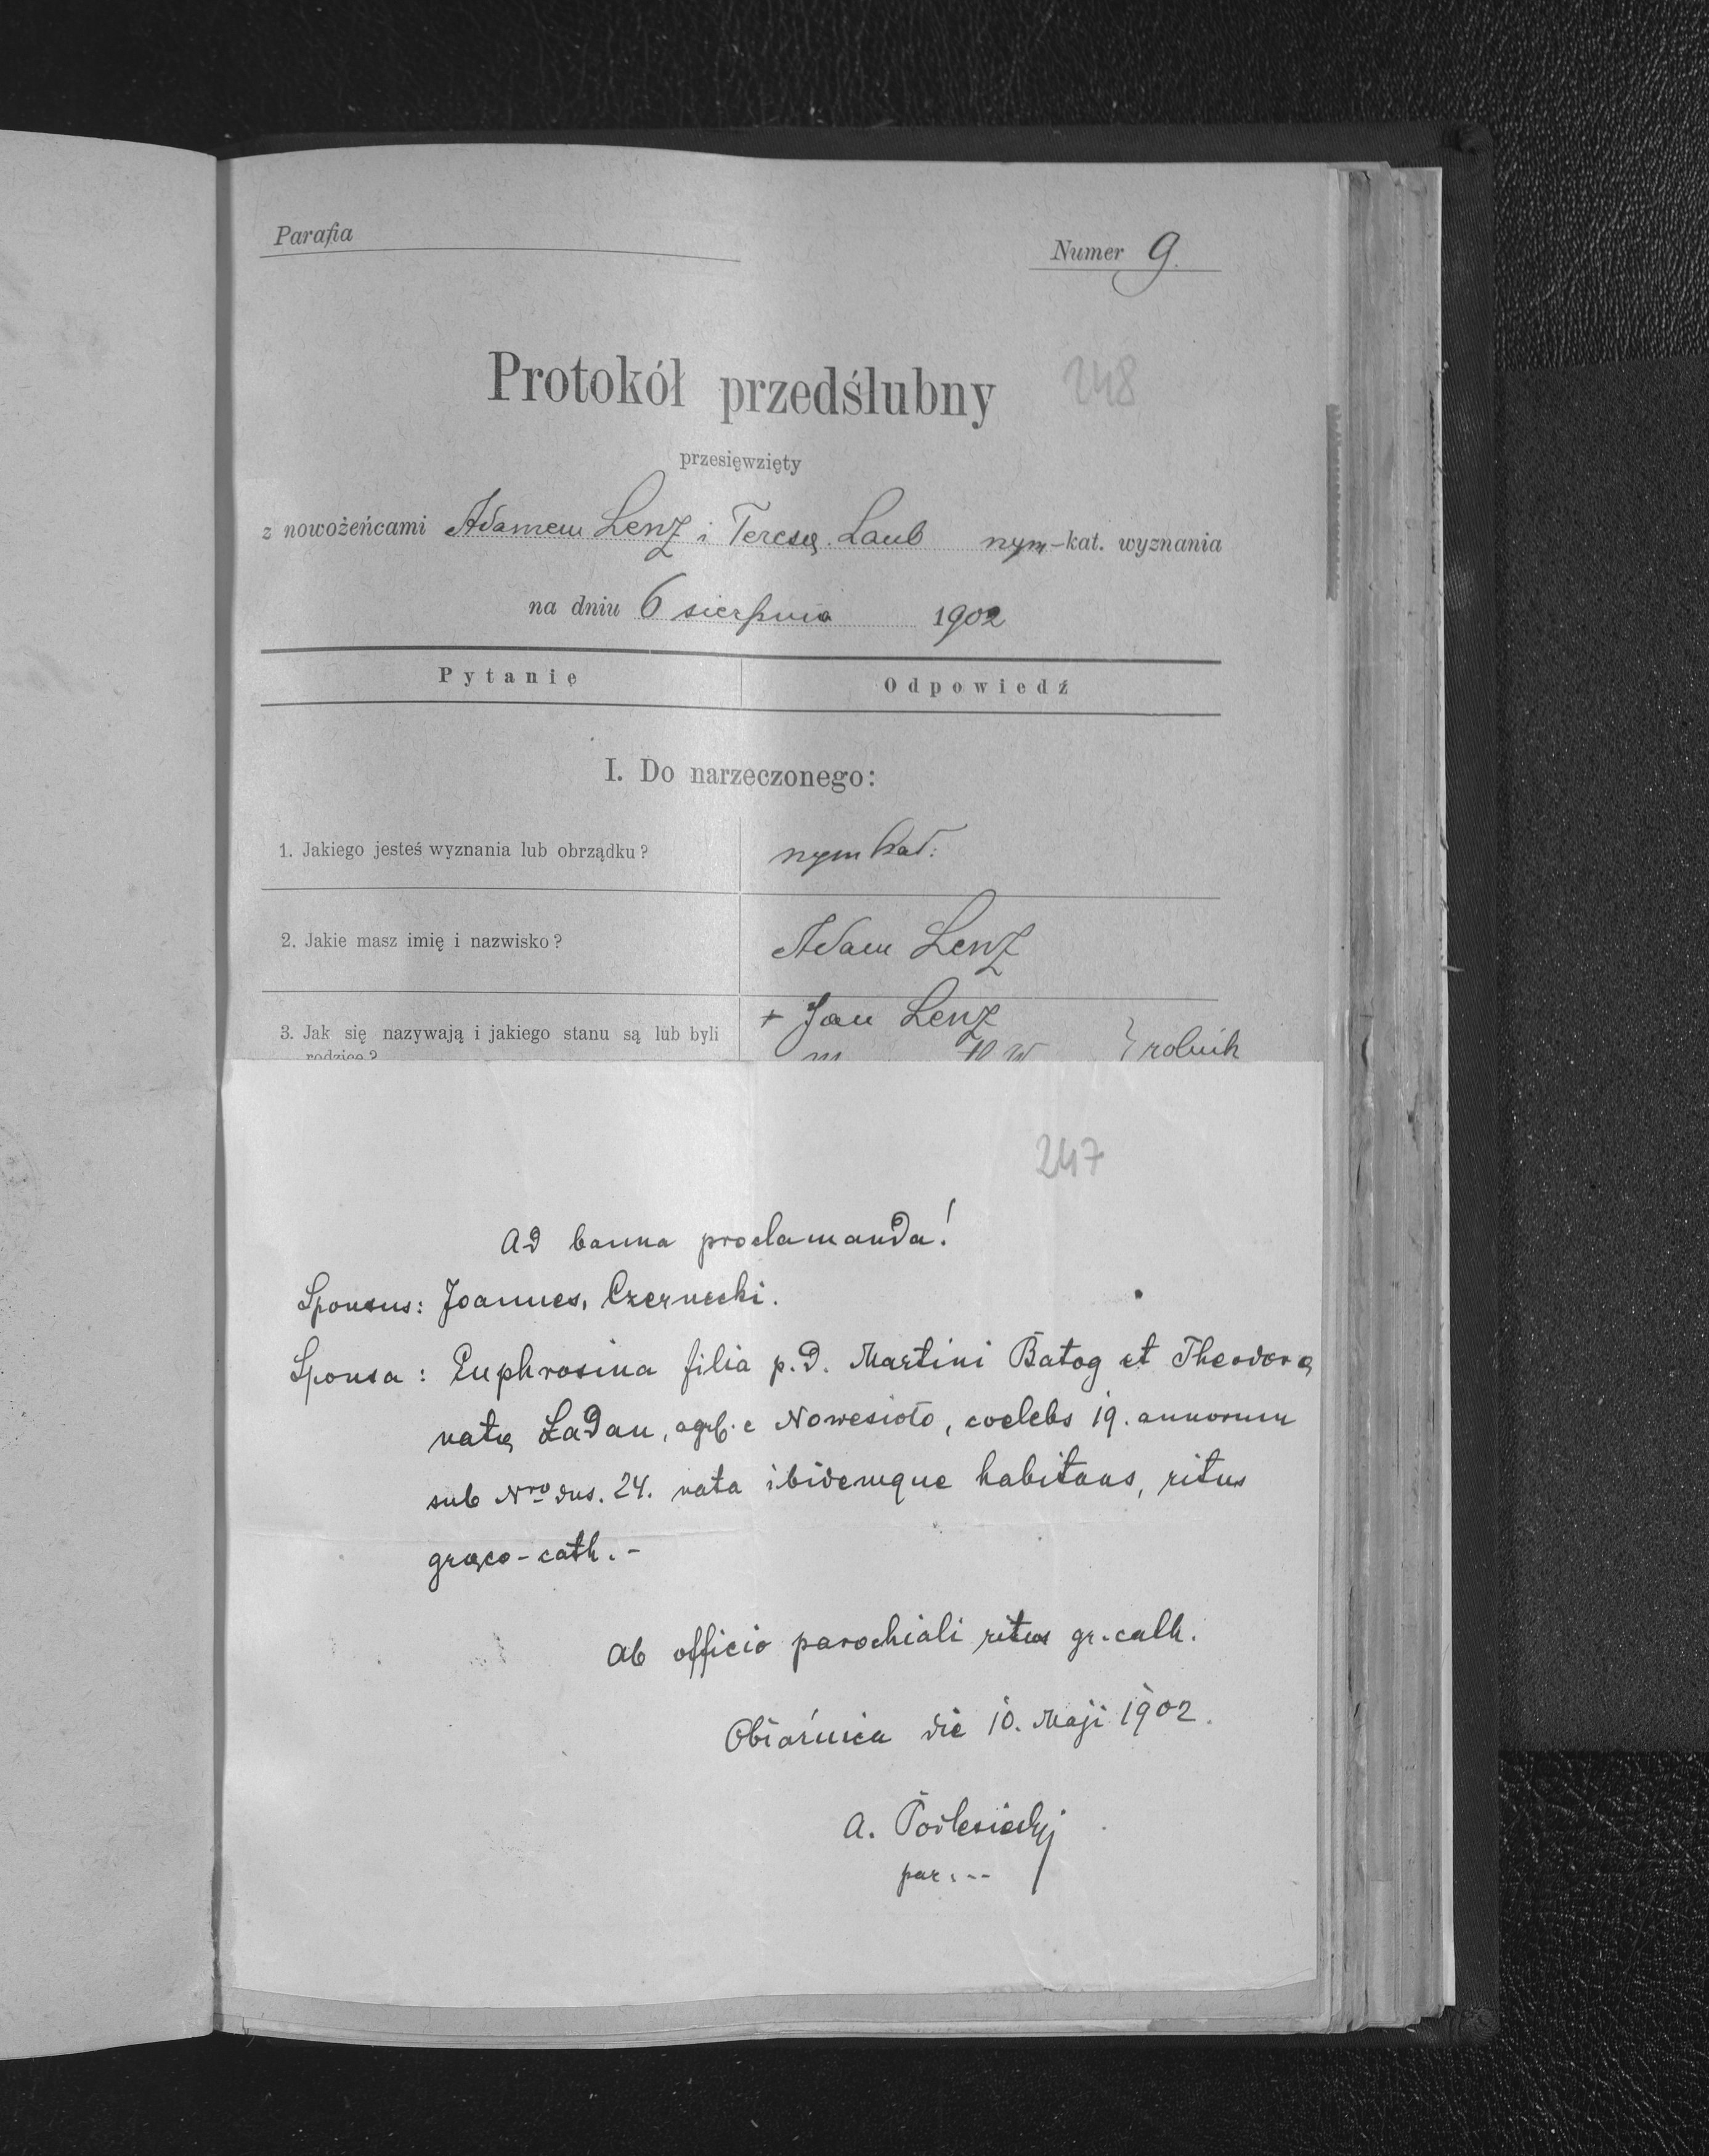 Parafia
Numer 9.
Protokół przedślubny
248
przesięwzięty
z nowożeńcami Adamem Lenz i Teresą Laub rzym-kat. wyznania
na dniu 6 sierpnia 1902
Pytanie
Odpowiedź
I. Do narzeczonego:
1. Jakiego jesteś wyznania lub obrządku?
rzym kat:
2. Jakie masz imię i nazwisko?
Adam Lenz
3. Jak się nazywają i jakiego stanu są lub byli
rodzice?
+ Jan Lenz
} rolnik
247
Ad banna proclamanda!
Sponsus: Joannes, Czernecki.
Sponsa: Euphrosina filia p. d. Martini Batog et Theodorę
natę Ładan, agr. c. Nowesioło, coelebs 19. annorum
sub Nro dus. 24. nata ibidemque habitans, ritus
gręco-cath. -
Ab officio parochiali ritus gr. cath.
Obłaźnica die 10. Maji 1902.
A. Podlesieckyj
par. --